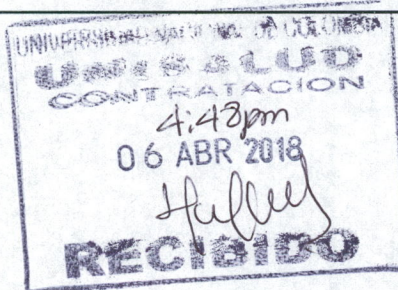 UNIVERSIDAD NACIONAL DE COLOMBIA
UNISALUD
CONTRATACION
4:48pm
06 ABR 2018
RECIBIDO